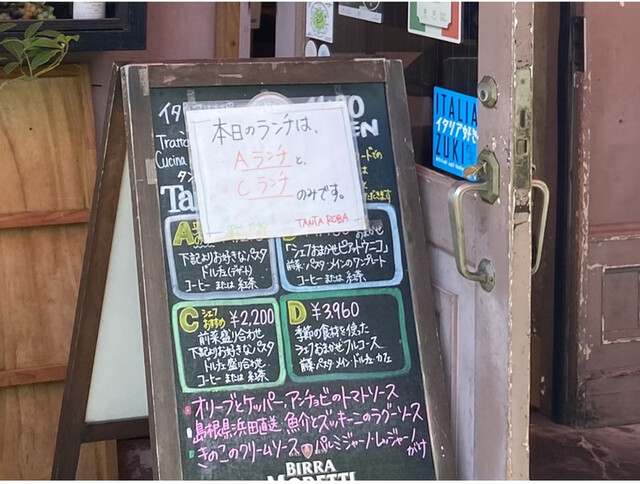 本日のランチは、
Aランチと、
Cランチ
のみです。
TANTA ROBA
Tratto
Cucina
EN
Ta
A
下記よりお好きなパスタ
ドルチェ(デザート)
コーヒーまたは紅茶
「シェフおまかせピアットウニコ」
前菜・パスタ・メインのワンプレート
コーヒーまたは紅茶
C シェフおすすめ ¥2,200
前菜盛り合わせ
下記よりお好きなパスタ
ドルチェ盛り合わせ
コーヒーまたは紅茶
D ¥3,960
季節の食材を使った
シェフおまかせフルコース
前菜・パスタ・メイン・ドルチェ・カフェ
オリーブとケッパー、アンチョビのトマトソース
島根県浜田直送 魚介とズッキーニのラグーソース
きのこのクリームソース パルミジャーノ・レッジャーノがけ
BIRRA
MORETTI
ITALIA
イタリア好き
ZUKI